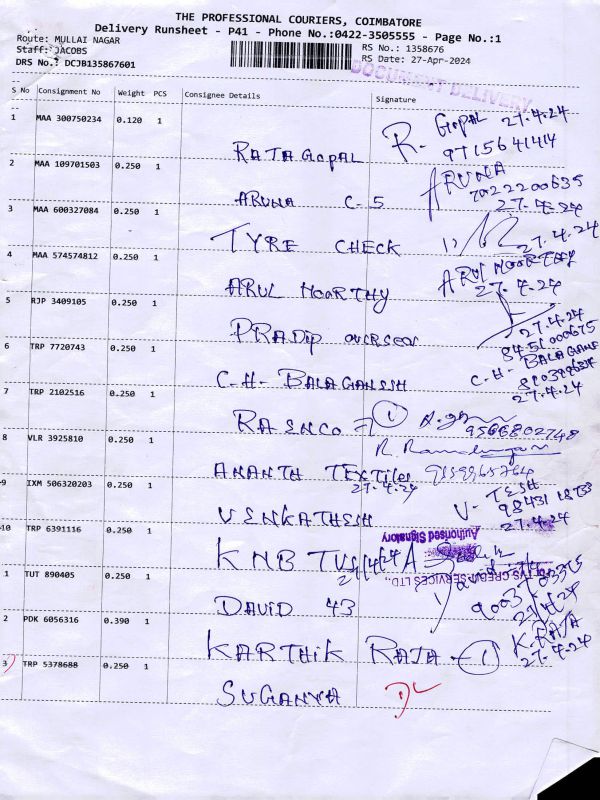 THE PROFESSIONAL COURIERS, COIMBATORE
Delivery Runsheet - P41 - Phone No.:0422-3505555 - Page No.:1
Route: MULLAI NAGAR
Staff: JACOBS
DRS No.: DCJB135867601
RS No.: 1358676
RS Date: 27-Apr-2024
DOCUMENT DELIVERY
S No Consignment No Weight PCS Consignee Details Signature
1 MAA 300750234 0.120 1
RAJAGOPAL R. GOPAL 27.4.24
9715641414
2 MAA 109701503 0.250 1
ARUNA C-5 ARUNA
7022200635
27.4.24
3 MAA 600327084 0.250 1
TYRE CHECK 27.4.24
4 MAA 574574812 0.250 1
ARUL MOORTHY ARUL MOORTHY
27.4.24
5 RJP 3409105 0.250 1
PRADIP 27.4.24
8451000675
6 TRP 7720743 0.250 1
C-H- BALAGANESH C-H- BALAGANESH
27.4.24
7 TRP 2102516 0.250 1
RASNCO 1
9566802748
8 VLR 3925810 0.250 1
ANANTH TEXTILES
27.4.24
9 IXM 506320203 0.250 1
VENKATHESH V-
27.4.24
10 TRP 6391116 0.250 1
KNB TVS
Authorised Signatory
SERVICES LTD.,
1 TUT 890405 0.250 1
DAVID 43
2 PDK 6056316 0.390 1
KARTHIK RAJA - 1 K. RAJA
27.4.24
3 TRP 5378688 0.250 1
SUGANYA